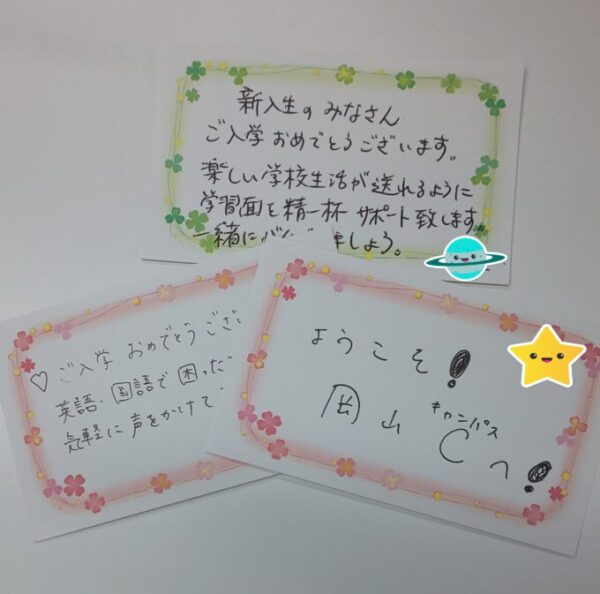 新入生のみなさん
ご入学おめでとうございます。
楽しい学校生活が送れるように
学習面を精一杯サポート致します
一緒に しょう。
♡ご入学おめでとうござい
英語・国語で困った
気軽に声をかけて
ようこそ!
岡山 キャンパス Cへ!